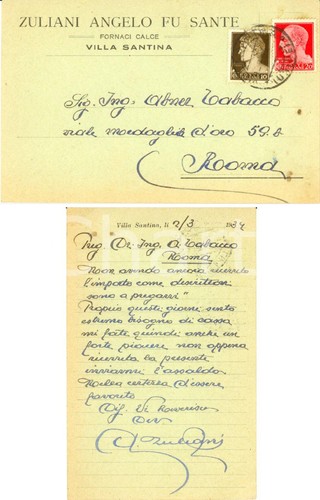 ZULIANI ANGELO FU SANTE
FORNACI CALCE
VILLA SANTINA
Sig. Ing. Abner Tabacco
viale medaglie d'oro 59.8
Rooma
Villa Santina, li 2/3 1934
Preg. Dr. Ing. A. Tabacco
Rooma
Non avendo ancora ricevuto
l'importo come
sono a pregarvi
Proprio questi giorni sento
estremo bisogno di cassa
mi fate quindi anche un
forte piacere non appena
ricevuta la presente
inviarmi l'assaldo
Nella certezza d'essere
favorito
A. Zuliani